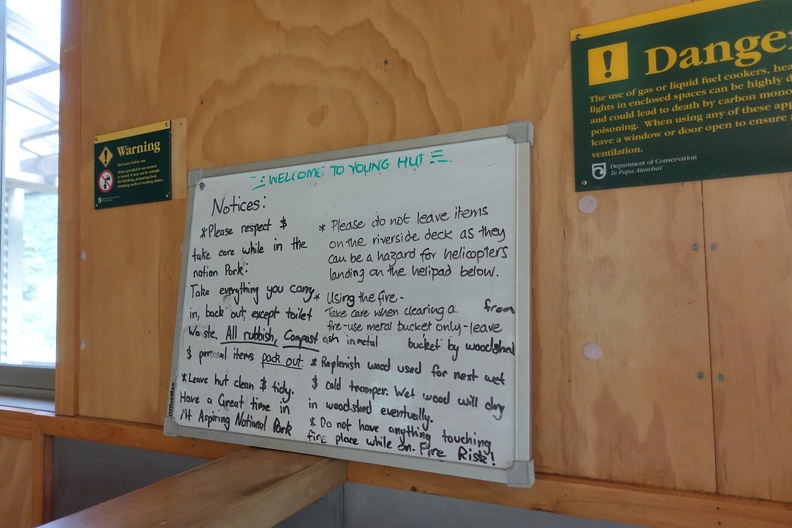 Warning
Boil water before use.
Danger
The use of gas or liquid fuel cookers,
lights in enclosed spaces can be highly
and could lead to death by carbon
poisoning. When using any of these
leave a window or door open to ensure
ventilation.
Department of Conservation
Te Papa Atawhai
WELCOME TO YOUNG HUT
Notices:
* Please respect &
take care while in the
nation Park:
Take everything you carry
in, back out, except toilet
Waste. All rubbish, Compost
& personal items pack out.
* Leave hut clean & tidy.
Have a Great time in
Mt Aspiring National Park
* Please do not leave items
on the riverside deck as they
can be a hazard for helicopters
landing on the helipad below.
* Using the fire -
Take care when clearing a from
fire - use metal bucket only - leave
ash in metal bucket by woodshed
* Replenish wood used for next wet
& cold tramper. Wet wood will dry
in woodshed eventually.
* Do not have anything touching
fire place while on. Fire Risk!
OfficeMax